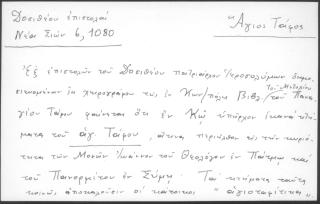 Δοσιθέου ἐπιστολαί
Νέα Σιών 6, 1080
Ἅγιος Τάφος
Ἐξ ἐπιστολῶν τοῦ Δοσιθέου πατριάρχου Ἱεροσολύμων δημο-
σιευομένων ἐκ χειρογράφου τῆς ἐν Κων/πόλει Βιβλ. τοῦ Πανα-
τοῦ Μετοχίου
γίου Τάφου φαίνεται ὅτι ἐν Κῷ ὑπῆρχον κτή-
ματα τοῦ ἁγ. Τάφου, ἅτινα περιῆλθον εἰς τὴν κυριό-
τητα τῶν Μονῶν Ἰωάννου τοῦ Θεολόγου ἐν Πάτμῳ καὶ
τοῦ Πανορμίτου ἐν Σύμῃ. Τὰ κτήματα ταῦτα
κοινῶς ἀποκαλοῦσιν οἱ κάτοικοι "ἁγιοταφίτικα"